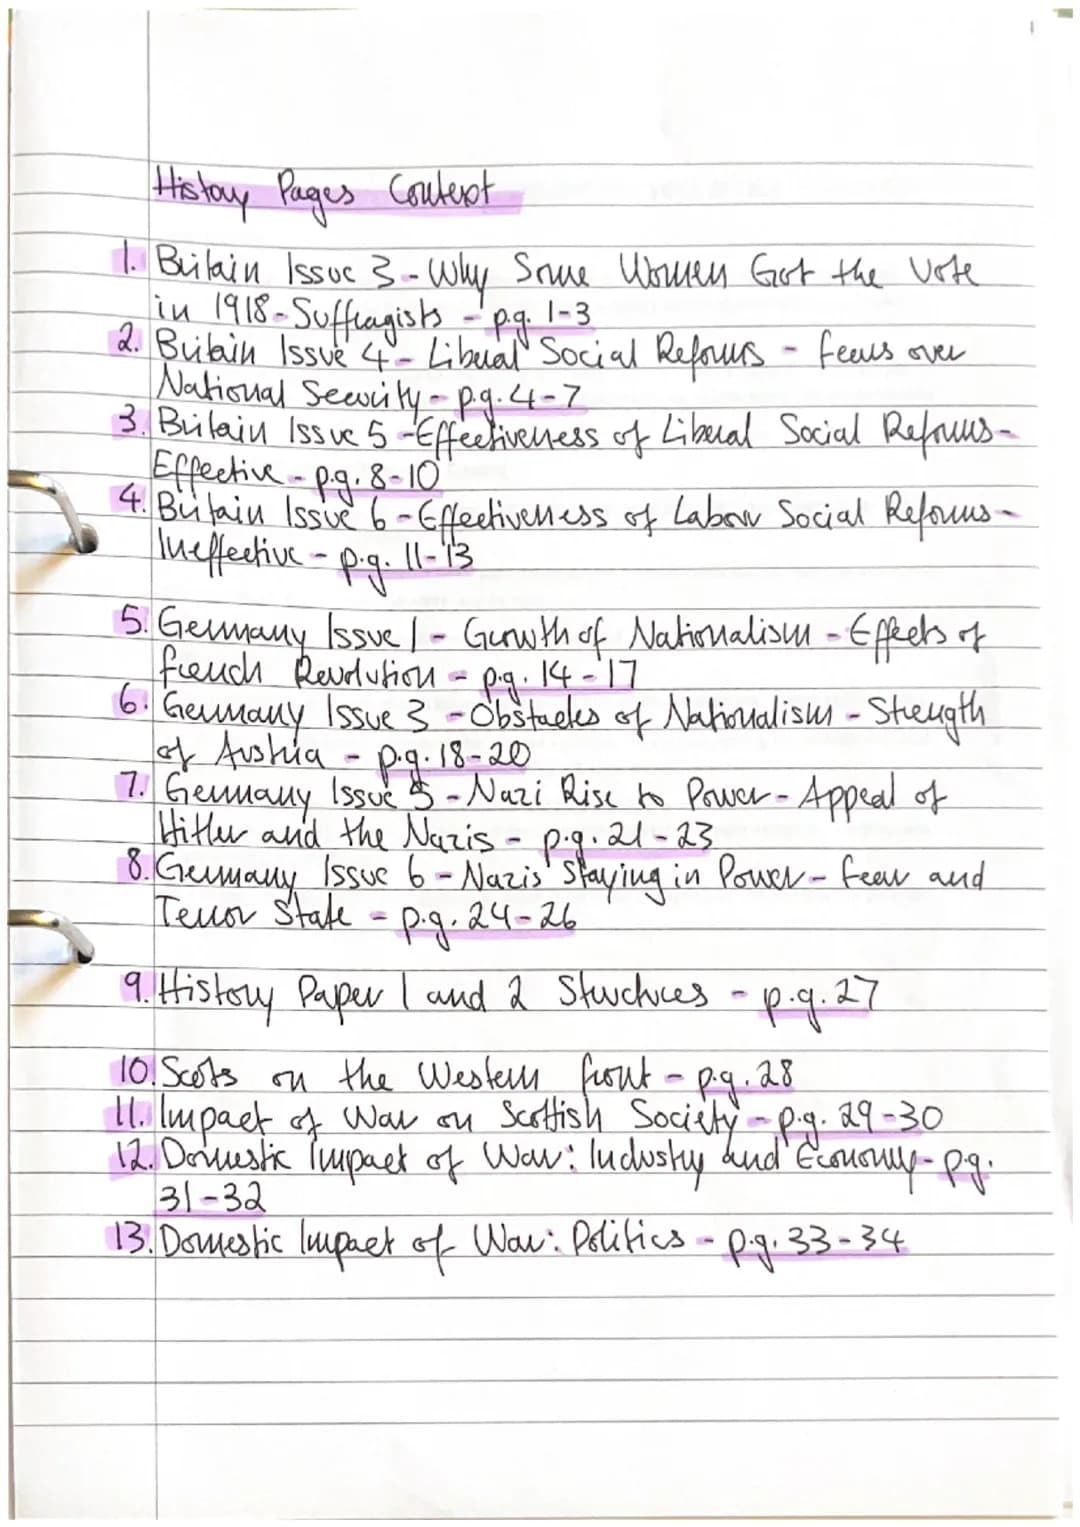 History Pages Content
1. Britain Issue 3 - Why Some Women Got the Vote
in 1918 - Suffragists - p.g. 1-3
2. Britain Issue 4 - Liberal Social Reforms - fears over
National Security - p.g. 4-7
3. Britain Issue 5 - Effectiveness of Liberal Social Reforms -
Effective - p.g. 8-10
4. Britain Issue 6 - Effectiveness of Labour Social Reforms -
Ineffective - p.g. 11-13
5. Germany Issue 1 - Growth of Nationalism - Effects of
french Revolution - p.g. 14-17
6. Germany Issue 3 - Obstacles of Nationalism - Strength
of Austria - p.g. 18-20
7. Germany Issue 5 - Nazi Rise to Power - Appeal of
Hitler and the Nazis - p.g. 21-23
8. Germany Issue 6 - Nazis Staying in Power - fear and
Terror State - p.g. 24-26
9. History Paper 1 and 2 Structures - p.g. 27
10. Scots on the Western front - p.g. 28
11. Impact of War on Scottish Society - p.g. 29-30
12. Domestic Impact of War: Industry and Economy - p.g.
31-32
13. Domestic Impact of War: Politics - p.g. 33-34